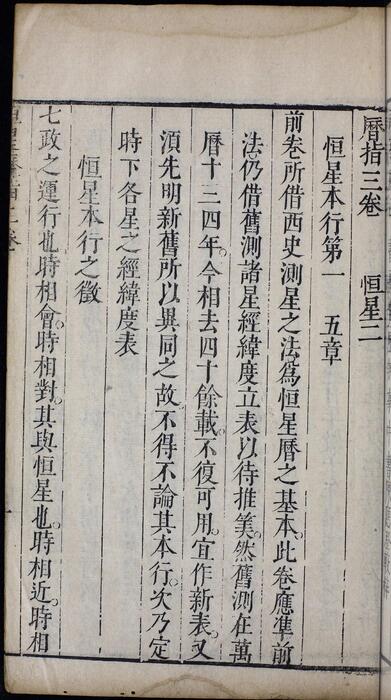 曆指三卷　恒星二
恒星本行第一　五章
前卷所借西史測星之法爲恒星曆之基本。此卷應準前
法仍借舊測諸星經緯度立表以待推筭。然舊測在萬
曆十三四年。今相去四十餘載。不復可用。宜作新表。又
須先明新舊所以異同之故。不得不論其本行。次乃定
時下各星之經緯度表
恒星本行之徵
七政之運行也。時相會。時相對。其與恒星也。時相近。時相